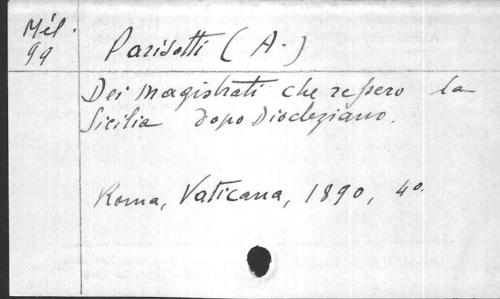 Mél.
99
Parisotti (A.)
Dei magistrati che ressero la
Sicilia dopo Diocleziano.
Roma, Vaticana, 1890, 4o.